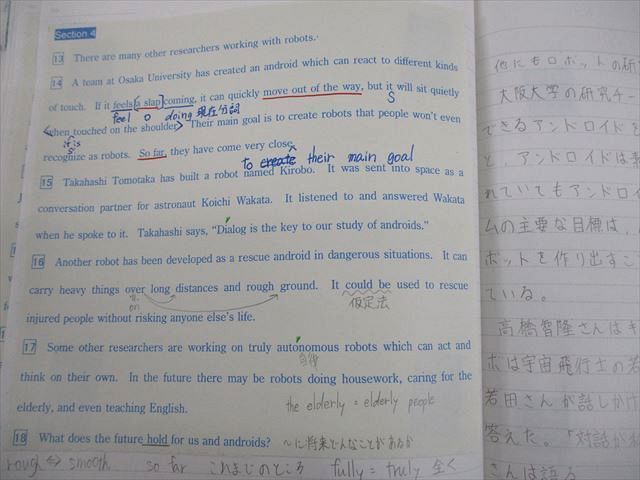 Section 4
13 There are many other researchers working with robots.
14 A team at Osaka University has created an android which can react to different kinds
of touch. If it feels [a slap] coming, it can quickly move out of the way, but it will sit quietly
feel O doing 現在分詞 S
<when touched on the shoulder> Their main goal is to create robots that people won't even
it is
S
recognize as robots. So far, they have come very close.
to create their main goal
15 Takahashi Tomotaka has built a robot named Kirobo. It was sent into space as a
conversation partner for astronaut Koichi Wakata. It listened to and answered Wakata
when he spoke to it. Takahashi says, "Dialog is the key to our study of androids."
16 Another robot has been developed as a rescue android in dangerous situations. It can
carry heavy things over long distances and rough ground. It could be used to rescue
on 仮定法
injured people without risking anyone else's life.
17 Some other researchers are working on truly autonomous robots which can act and
think on their own. In the future there may be robots doing housework, caring for the
elderly, and even teaching English.
the elderly = elderly people
18 What does the future hold for us and androids? ～に将来どんなことがあるか
rough ⇔ smooth so far これまでのところ fully = truly 全く
他にもロボットの研
大阪大学の研究チー
できるアンドロイドを
と、アンドロイドは素
れていてもアンドロイ
ムの主要な目標は、
ボットを作り出すこ
ている。
高橋智隆さんはキ
ボは宇宙飛行士の若
若田さんが話しかけ
答えた。「対話が
さんは語る